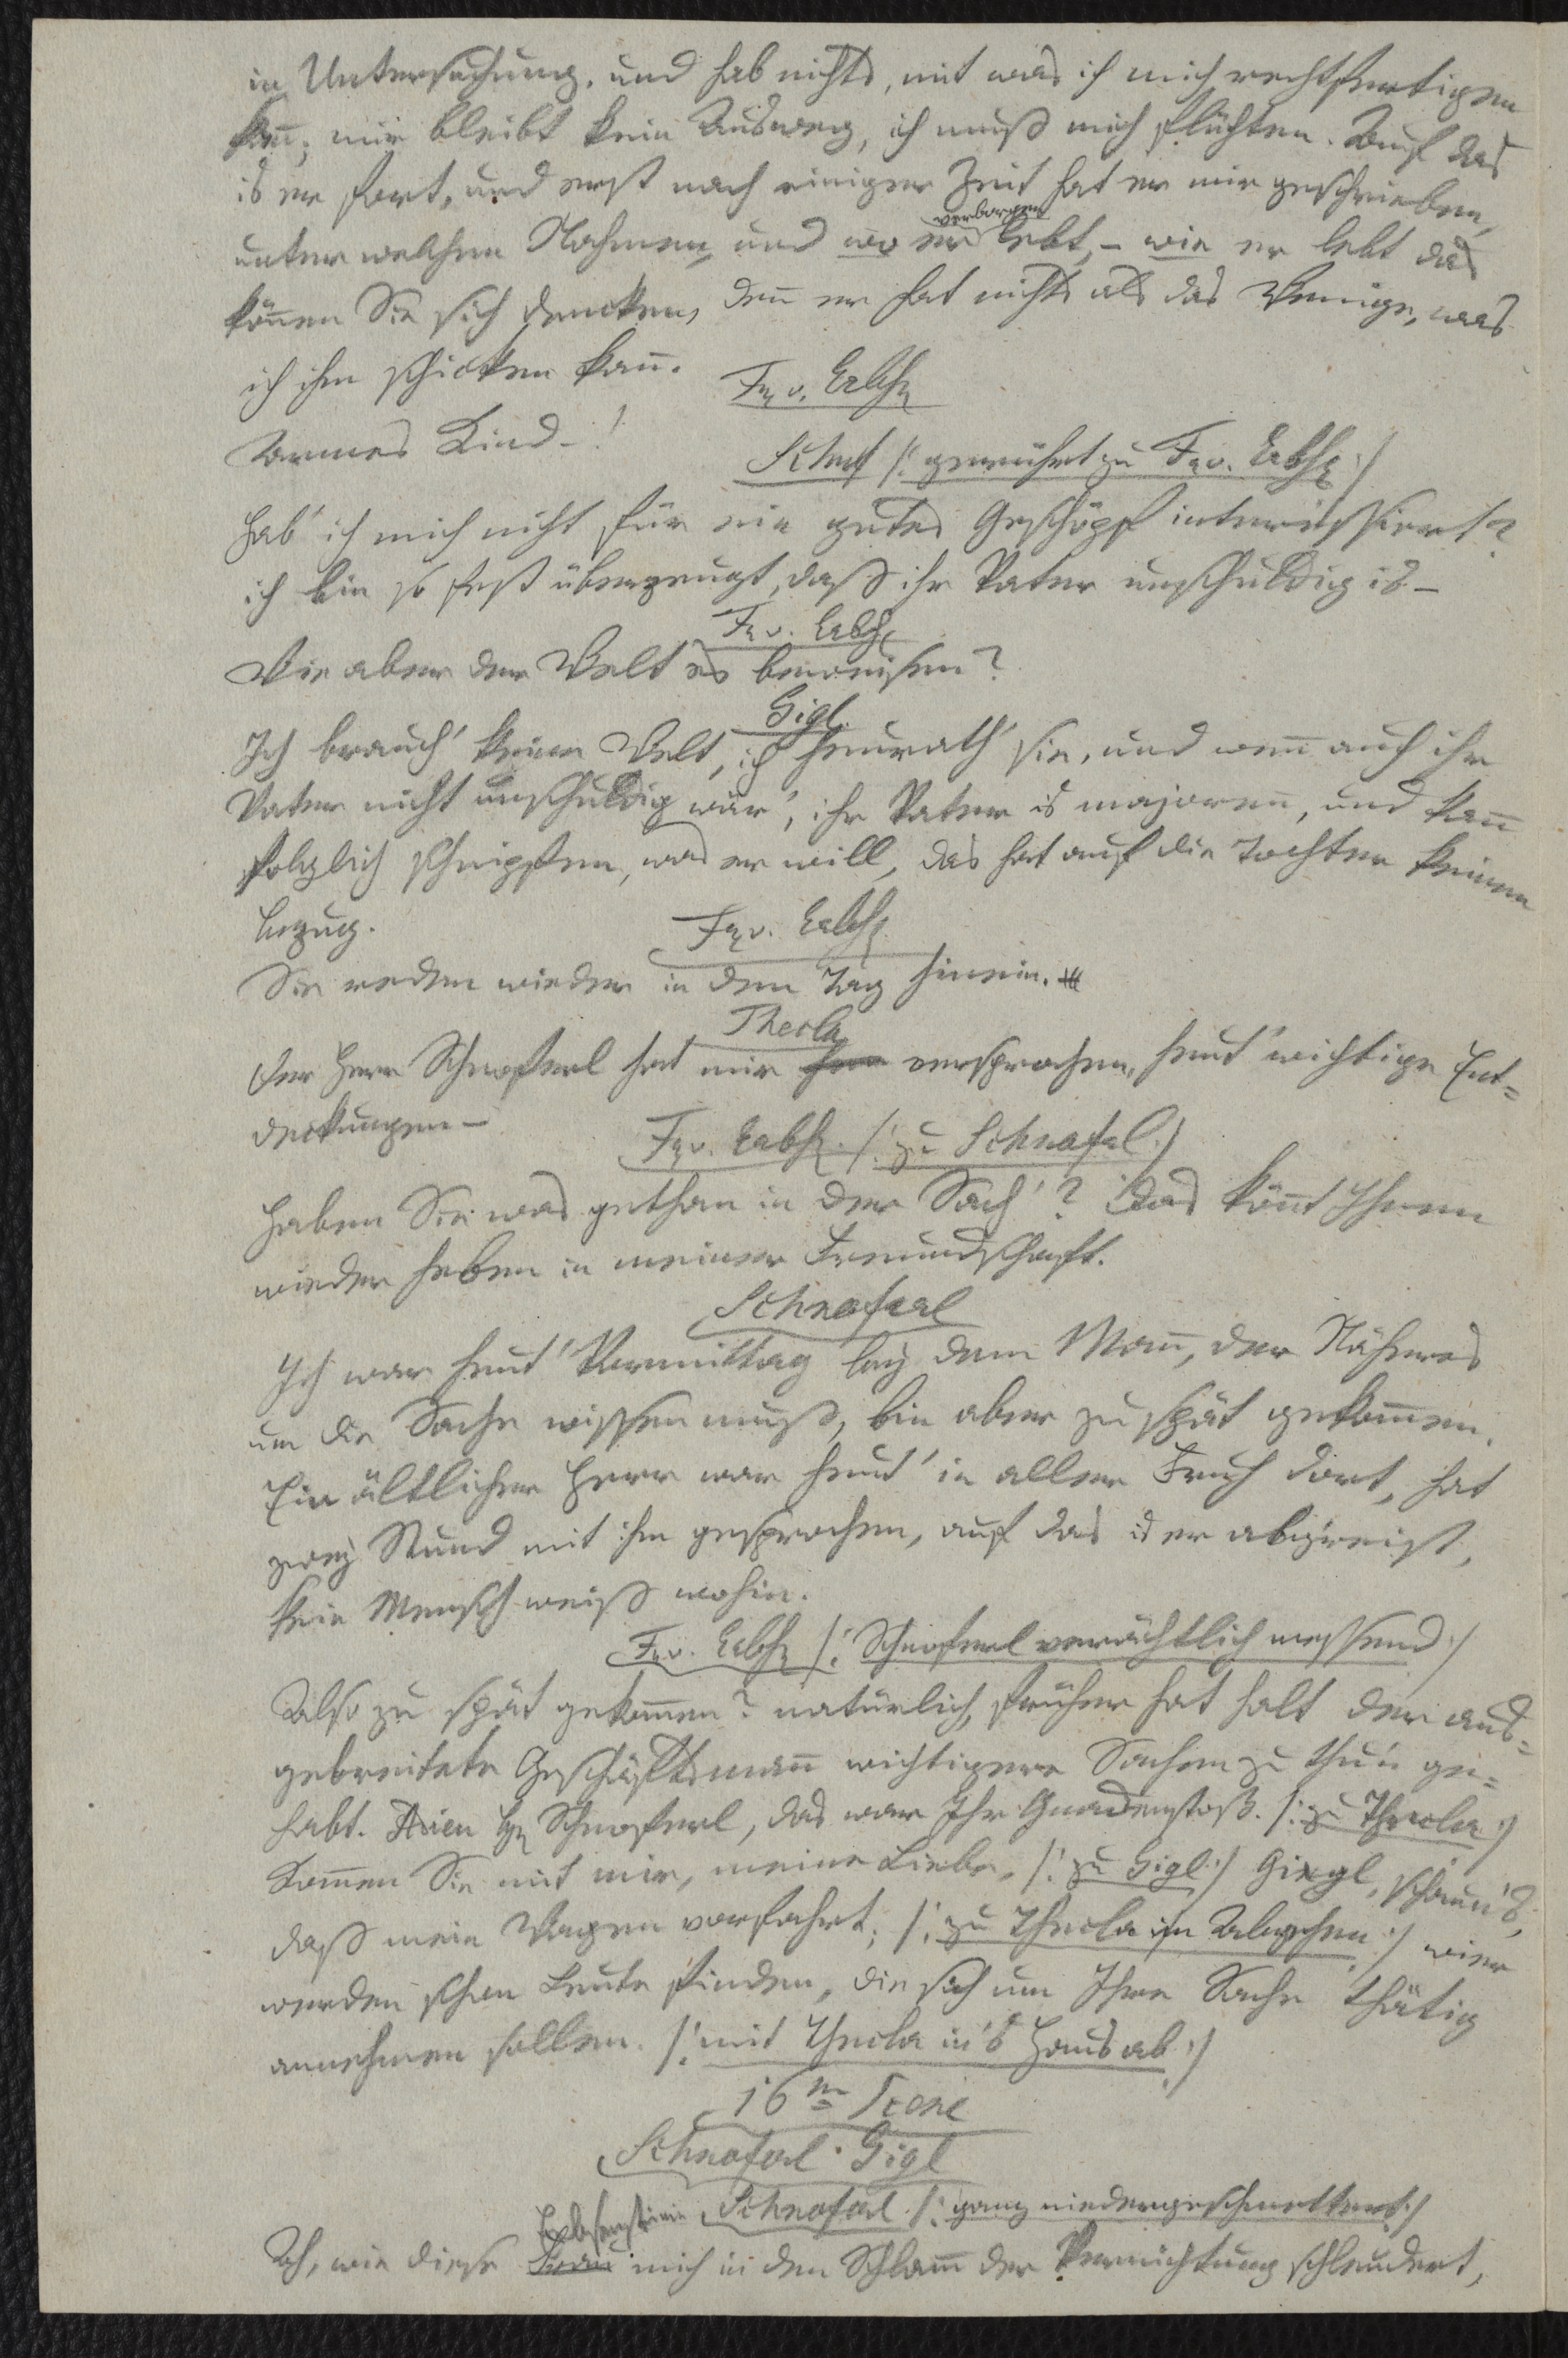 in Untersuchung, und hab nichts, mit was ich mich rechtfertigen
kan̄; mir bleibt kein Ausweg, ich muß mich flüchten. Auf das
is er fort, und erst nach einiger Zeit hat er mir geschrieben,
verborgen
unter welchen Nahmen, und wo er lebt, – wie er lebt das
kön̄en Sie sich dencken, den̄ er hat nichts als das Wenige, was
ich ihm schicken kan̄.
Fr v. Erbs
Armes Kind – !
Schnf /: gerührt zu Fr v. Erbs :/
Hab' ich mich nicht für ein gutes Geschöpf interessiert?
ich bin so fest überzeugt, daß ihr Vater unschuldig is –
Fr v. Erbs
Wie aber der Welt es beweisen?
Gigl.
Ich brauch' keine Welt, ich heurath' sie, und wen̄ auch ihr
Vater nicht unschuldig wär', ihr Vater is majoren̄, und kan̄
folglich schnipfen, was er will, das hat auf die Tochter keinen
Bezug.
Fr v. Erbs
Sie reden wieder in den Tag hinein.
Thecla
Der Herr Schnoferl hat mir versprochen, heut' wichtige Ent=
deckungen –
Fr v. Erbs. /: zu Schnoferl :/
Haben Sie was gethan in der Sach'? Das kön̄t Ihnen
wieder heben in meiner Freundschaft.
Schnoferl
Ich war heut' Vormittag bey dem Man̄, der Näheres
um die Sache wissen muß, bin aber zu spät gekom̄en.
Ein ältlicher Herr war heut' in aller Fruh dort, hat
zwey Stund mit ihm gesprochen, auf das is er abg'reist,
kein Mensch weiß wohin.
Fr v. Erbs /: Schnoferl verächtlich messend :/
Also zu spät gekom̄en? natürlich, früher hat halt der aus=
gebreitete Geschäftsman̄ wichtigere Sachen zu thu'n ge=
habt. Adieu Hr Schnoferl, das war Ihr Gnadenstoß. /: zu Thecla :/
Kom̄en Sie mit mir, meine Liebe, /: zu Gigl :/ Gigl, schau'n S',
daß mein Wagen vorfahrt; /: zu Thecla im Abgehen :/ wir
werden schon Leute finden, die sich um Ihre Sache thätig
annehmen sollen. /: mit Thecla in's Haus ab :/
16te Scene
Schnoferl. Gigl
Schnoferl /: ganz niedergeschmettert :/
Erbsenstein
Ah, wie diese Frau mich in den Schlam̄ der Vernichtung schleudert,